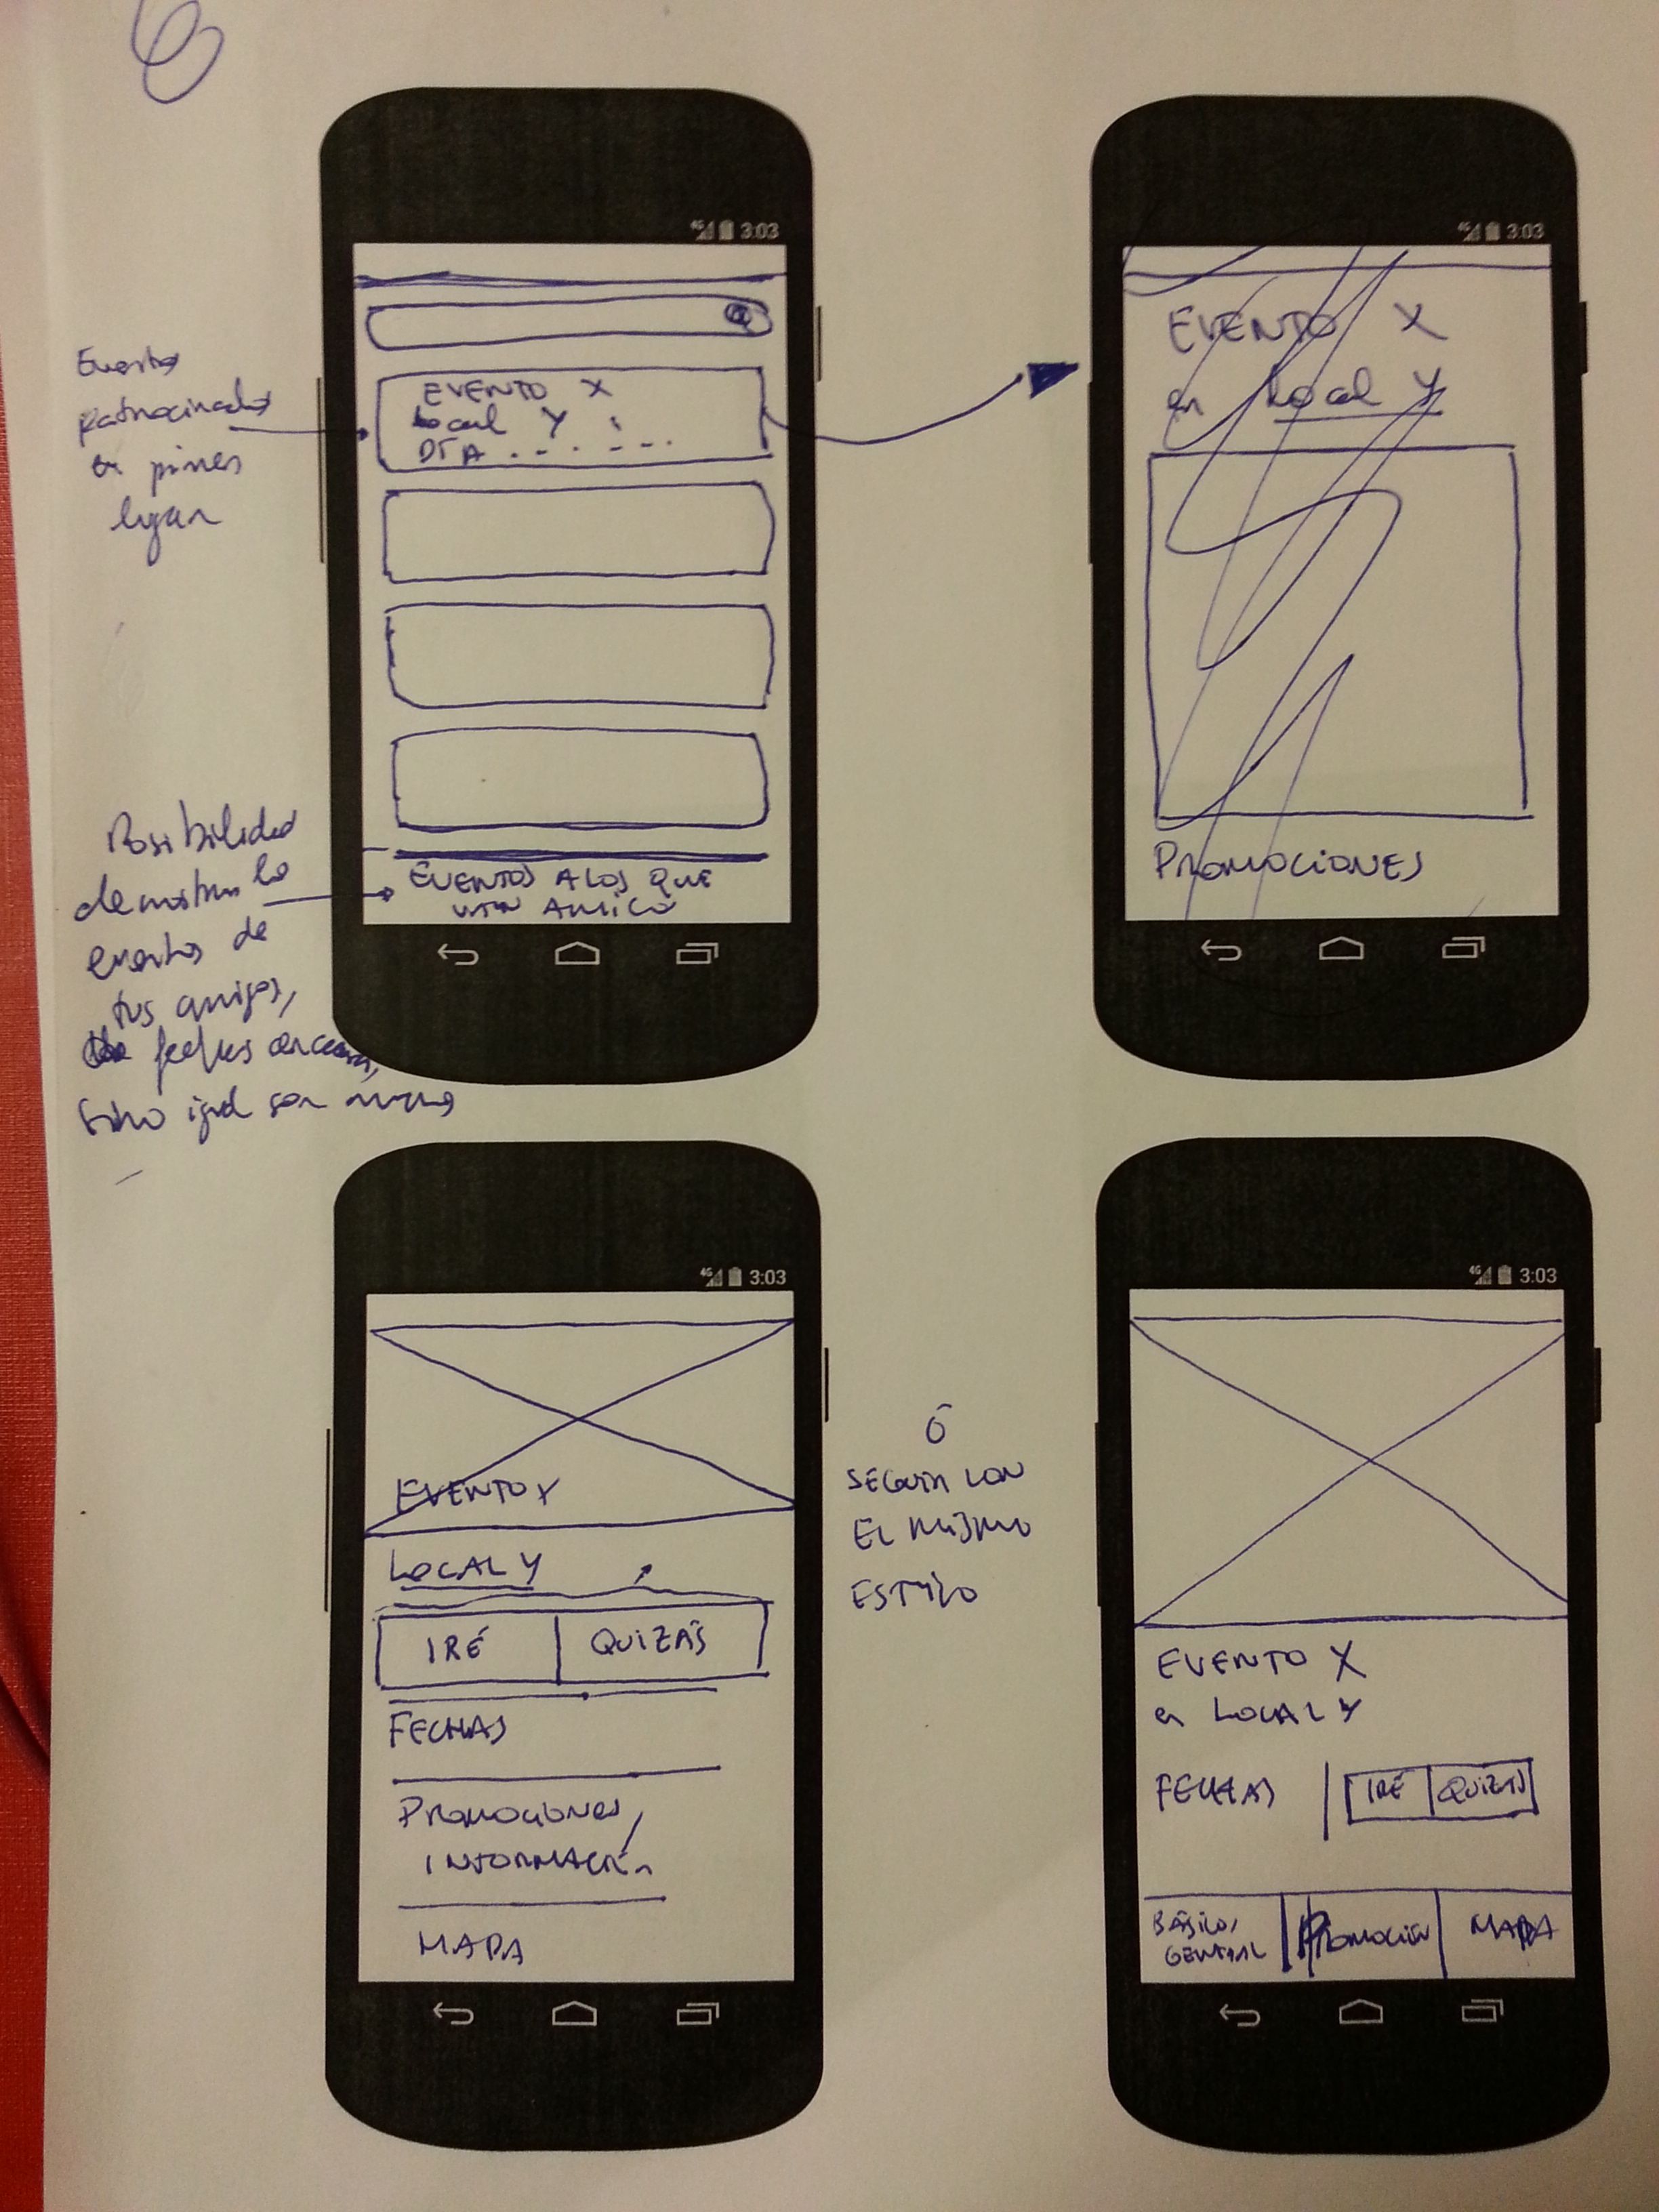 6
Eventos
patrocinados
en primer
lugar
3:03
EVENTO X
Local Y
DÍA
Posibilidad
de mostrar los
eventos de
tus amigos,
EVENTOS A LOS QUE
VAN AMIGO
3:03
EVENTO X
en Local Y
PROMOCIONES
3:03
EVENTO X
LOCAL Y
IRÉ
QUIZÁS
FECHAS
PROMOCIONES,
INFORMACIÓN
MAPA
Ó
SEGUIR CON
EL MISMO
ESTILO
3:03
EVENTO X
en LOCAL Y
FECHAS
IRÉ
QUIZÁS
BÁSICO,
GENERAL
PROMOCIÓN
MAPA